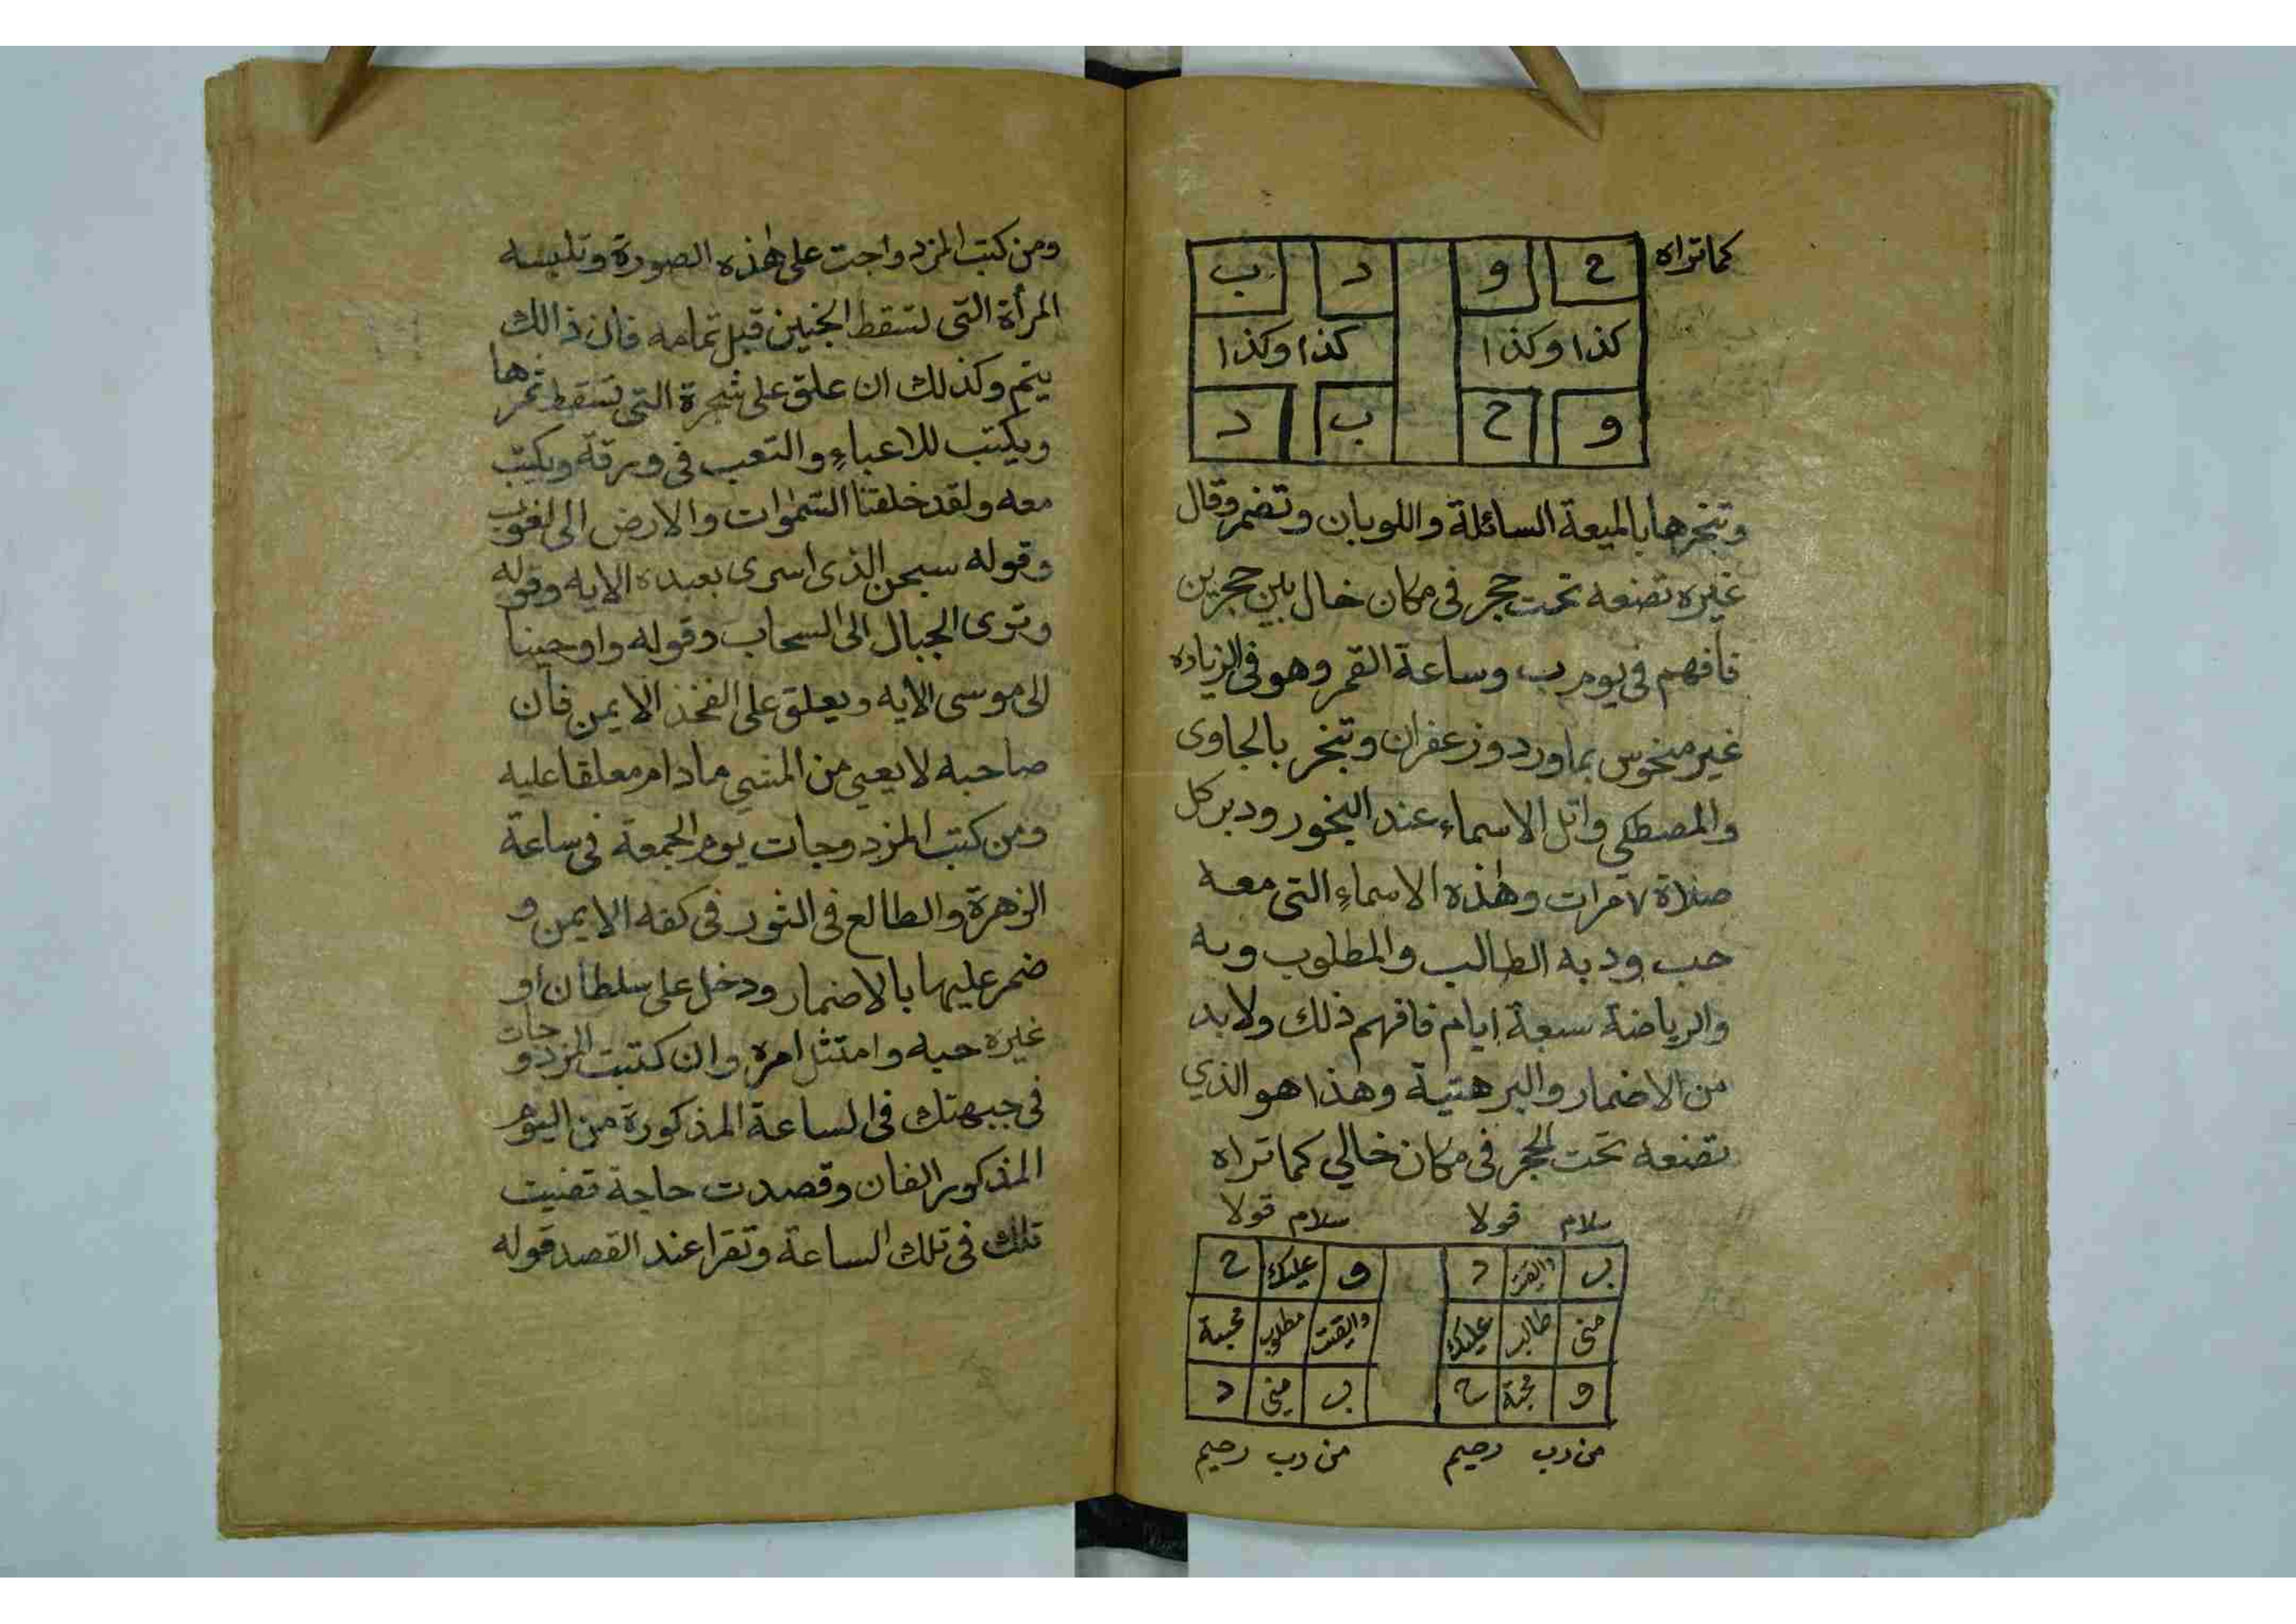 كما تراه
ح و د ب
كذا وكذا كذا وكذا
و ح ب د
وتبخرها بالميعة السائلة واللوبان وتضمر وقال
غيره تضعه تحت حجر فى مكان خال بين حجرين
فافهم فى يوم ب وساعة القمر وهو فى الزياده
غير منحوس بماورد وزعفران وتبخر بالجاوى
والمصطكى واتل الاسماء عند البخور ودبر كل
صلاة ٧ مرات وهذه الاسماء التى معه
حب ود به الطالب والمطلوب وبه
والرياضة سبعة ايام فافهم ذلك ولابد
من الاضمار والبرهتية وهذا هو الذي
تضعه تحت الحجر فى مكان خالي كما تراه
سلام قولا سلام قولا
ب والقيت د و عليك ح
منى طالب عليك والقيت مطلوب محبة
و محبة ح ب منى د
من رب رحيم من رب رحيم
ومن كتب المزدواجت على هذه الصورة وتلبسه
المرأة التى تسقط الجنين قبل تمامه فان ذالك
يتم وكذلك ان علق على شجرة التى تسقط ثمرها
ويكتب للاعباء والتعب فى ورقة ويكتب
معه ولقد خلقنا السموات والارض الى لغوب
وقوله سبحن الذى اسرى بعبده الايه وقوله
وترى الجبال الى السحاب وقوله واوحينا
الى موسى الايه ويعلق على الفخذ الايمن فان
صاحبه لا يعيي من المشي مادام معلقا عليه
ومن كتب المزدوجات يوم الجمعة فى ساعة
الزهرة والطالع فى الثور فى كفه الايمن و
ضمر عليها بالاضمار ودخل على سلطان او
غيره حبه وامتثل امره وان كتبت المزدوجات
فى جبهتك فى الساعة المذكورة من اليوم
المذكور الفان وقصدت حاجة تقضيت
تلك فى تلك الساعة وتقرا عند القصد قوله